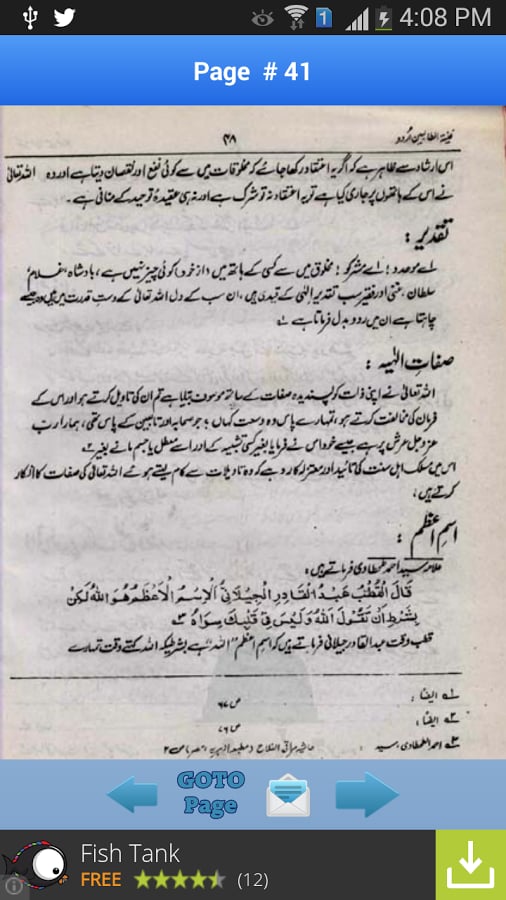 4:08 PM
Page # 41
غنیۃ الطالبین اُردو
۴۸
اس ارشاد سے ظاہر ہے کہ اگر یہ اعتقاد رکھا جائے کہ مخلوقات میں سے کوئی نفع اور نقصان دیتا ہے اور وہ اللہ تعالیٰ
نے اس کے ہاتھوں پر جاری کیا ہے تو یہ اعتقاد نہ تو شرک ہے اور نہ ہی عقیدۂ توحید کے منافی ہے۔
تقدیر :
اے موحدو! اے مشرکو! مخلوق میں سے کسی کے ہاتھ میں از خود کوئی چیز نہیں ہے، بادشاہ، غلام،
سلطان، غنی اور فقیر سب تقدیرِ الٰہی کے قیدی ہیں، ان سب کے دل اللہ تعالیٰ کے دستِ قدرت میں ہیں وہ جیسے
چاہتا ہے ان میں ردوبدل فرماتا ہے ۱
صفاتِ الٰہیہ :
اللہ تعالیٰ نے اپنی ذات کو پسندیدہ صفات کے ساتھ موصوف بتلایا ہے تم ان کی تاویل کرتے ہو اور اس کے
فرمان کی مخالفت کرتے ہو، تمہارے پاس وہ وسعت کہاں ؟ جو صحابہ اور تابعین کے پاس تھی، ہمارا رب
عزوجل عرش پر ہے جیسے خود اس نے فرمایا بغیر کسی تشبیہ کے اور اسے معطل یا جسم مانے بغیر ۲
اس میں مسلک اہل سنت کی تائید اور معتزلہ کا رد ہے کہ وہ تاویلات سے کام لیتے ہوئے اللہ تعالیٰ کی صفات کا انکار
کرتے ہیں،
اسمِ اعظم :
علامہ سید احمد طحطاوی فرماتے ہیں:
قَالَ الْقُطْبُ عَبْدُ الْقَادِرِ الْجِيْلَانِيُّ اَلْاِسْمُ الْاَعْظَمُ هُوَ اللهُ لٰكِنْ
بِشَرْطِ اَنْ تَقُوْلَ اَللهُ وَلَيْسَ فِيْ قَلْبِكَ سِوَاهُ ۳
قطب وقت عبدالقادر جیلانی فرماتے ہیں کہ اسم اعظم "اللہ" ہے بشرطیکہ اللہ کہتے وقت تمہارے
۱ ایضًا : ص ۶۷
۲ ایضًا : ص ۷۶
۳ احمد الطحطاوی، سید حاشیہ مراقی الفلاح ص ۲
GOTO
Page
Fish Tank
FREE (12)